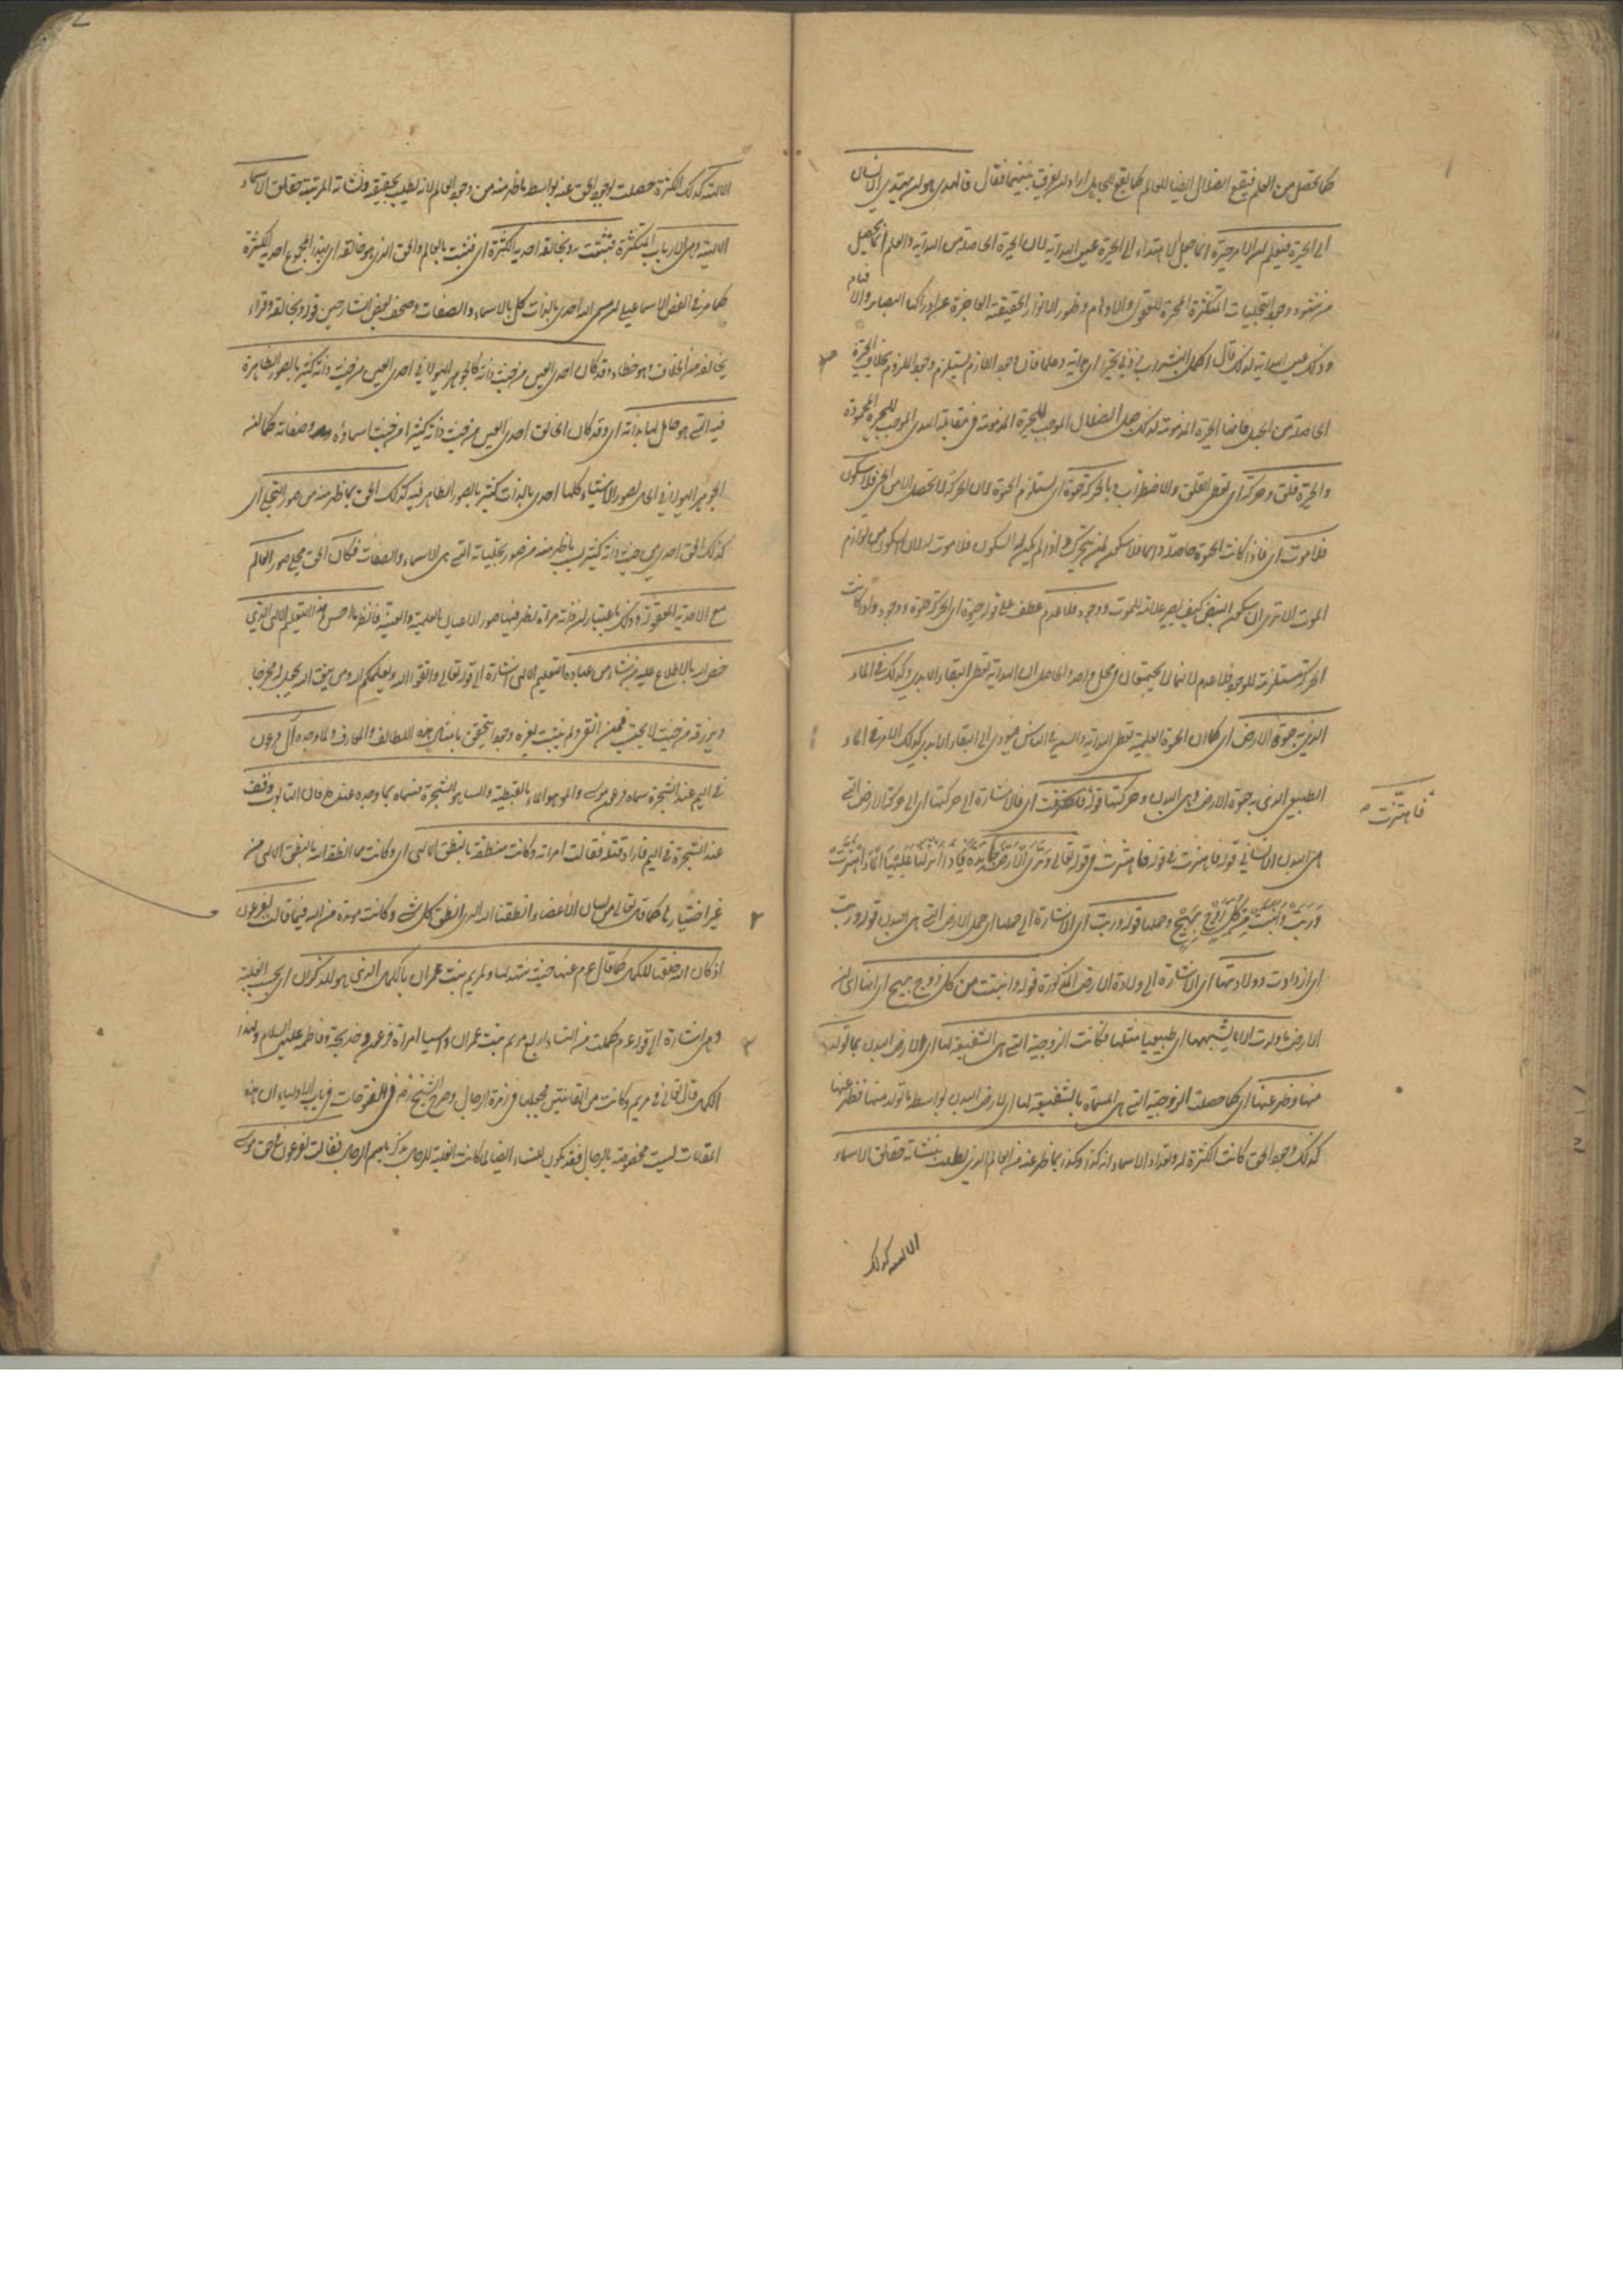 كما يحصل من العلم فيقع الضلال ايضا للعالم كما يقع للجاهل اراد ان يفرق بينهما فقال فالهدى هو ان يهتدي الانسان
الى الحيرة فيعلم ان الامر حيرة انما جعل الاهتداء الى الحيرة عين الهداية لان الحيرة الحاصلة من الهداية والعلم انما يحصل
من شهود وجوه التجليات المتكثرة المحيرة للعقول والاوهام وظهور الانوار الحقيقية العاجزة عن ادراكها البصاير والافهام
وذلك عين الهداية لذلك قال اكمل البشر رب زدني تحيرا اي هداية وعلما فان وجود اللازم يستلزم وجود الملزوم بخلاف الحيرة
الحاصلة من الجهل فانها الحيرة المذمومة لذلك جعل الضلال الموجب للحيرة المذمومة في مقابلة الهدى الموجب للحيرة المحمودة
والحيرة قلق وحركة اي تعطي القلق والاضطراب وبالحركة حيوة اي يستلزم الحيوة لان الحركة لا تحصل الا من الحي فلا سكون
فلا موت اي فاذا كانت الحيوة حاصلة دائما فلا سكون لمن يتحرك واذا لم يكن له السكون فلا موت له لان السكون من لوازم
الموت الا ترى الى سكون النبض كيف يصير علامة للموت ووجود فلا عدم عطف على قوله حيوة اي الحركة حيوة ووجود واذا كانت
الحركة مستلزمة للوجود فلا عدم لانهما لا يجتمعان في محل واحد والحاصل ان الهداية تعطي البقاء الابدي وكذلك في الماء
الذي به حيوة الارض اي كما ان الحيوة العلمية تعطي الهداية والهدى في الناس فيؤدي الى البقاء الابدي كذلك الامر في الماء
الطبيعي الذي به حيوة الارض وهي البدن وحركتها قوله فاهتزت اي فالاشارة الى حركتها اي الى حركة الارض التي
فاهتزت
هي البدن الانساني قوله فاهتزت في قوله تعالى وترى الارض هامدة فاذا انزلنا عليها الماء اهتزت
وربت وانبتت من كل زوج بهيج وحملها قوله وربت اي الاشارة الى حملها اي حمل الارض التي هي البدن قوله وربت
اي ازدادت وولادتها اي الاشارة الى ولادة الارض المذكورة قوله وانبتت من كل زوج بهيج اي انها اي ان
الارض ما ولدت الا ما يشبهها اي طبيعيا مثلها فكانت الزوجية التي هي الشفعية لها اي للارض البدن بما تولد
منها وظهر عنها اي كما حصلت الزوجية التي هي المسماة بالشفعية لها اي لارض البدن بواسطة ما تولد منها فظهر عنها
كذلك وجود الحق كانت الكثرة له وتعداد الاسماء انه كذا وكذا بما ظهر عنه من العالم الذي يطلب بنشأته حقائق الاسماء
الالهية كذلك
الالهية كذلك الكثرة حصلت لوجود الحق عنه بواسطة ما ظهر منه من وجود العالم لانه يطلب بحقيقته ونشأته المرتبية حقائق الاسماء
الالهية وهي الارباب المتكثرة فثبتت به وبخالقه احدية الكثرة اي فثبتت بالعالم والحق الذي هو خالقه اي بهذا المجموع احدية الكثرة
كما مر في الفص الاسماعيلي ان مسمى الله احدي بالذات كل بالاسماء والصفات وصحف بعض الشارحين قوله وبخالقه وقراء
يخالفه من الخلاف وهو خطاء وقد كان احدي العين من حيث ذاته كالجوهر الهيولاني احدي العين من حيث ذاته كثير بالصور الظاهرة
فيه التي هو حامل لها بذاته اي وقد كان الحق احدي العين من حيث ذاته كثيرا من حيث اسماؤه وصفاته كما ان
الجوهر الهيولاني الحامل لصور الاشياء كلها احدي بالذات كثير بالصور الظاهر فيه كذلك الحق بما ظهر منه من صور التجلي اي
كذلك الحق احدي من حيث ذاته كثير بسبب ما ظهر منه من صور تجلياته التي هي الاسماء والصفات فكان الحق مجلى صور العالم
مع الاحدية المعقولة وذلك باعتبار ان ذاته مرآة يظهر فيها صور الاعيان العلمية والعينية فانظر ما احسن هذا التعليم الالهي الذي
خص الله بالاطلاع عليه من شاء من عباده التعليم الالهي اشارة الى قوله تعالى واتقوا الله ويعلمكم الله ومن يتق الله يجعل له مخرجا
ويرزقه من حيث لا يحتسب فمن اتقى ولم يثبت لغيره وجودا يتحقق بامثال هذه اللطائف والمعارف ولما وجده آل فرعون
في اليم عند الشجرة سماه فرعون موسى والمو هو الماء بالقبطية والسا هو الشجرة فسماه بما وجده عنده فان التابوت وقف
عند الشجرة في اليم فاراد قتله فقالت امرأته وكانت منطقة بالنطق الالهي اي وكانت ممن انطقه الله بالنطق الالهي من
غير اختيارها كما قال تعالى عن لسان الاعضاء انطقنا الله الذي انطق كل شيء وكانت مؤيدة من الله فيما قالت لفرعون
اذ كان الله خلقها للكمال كما قال عم عنها حيث شهد لها ولمريم بنت عمران بالكمال الذي هو للذكران اي بحسب الغلبة
وهي اشارة الى قوله عم كملت من النساء اربع مريم بنت عمران وآسيا امرأة فرعون وخديجة وفاطمة عليهن السلام ولهذا
الكمال قال تعالى في مريم وكانت من القانتين فجعلها في زمرة الرجال وصرح الشيخ رض في الفتوحات في باب الاولياء ان هذه
المقامات ليست مخصوصة بالرجال فقد يكون للنساء ايضا لما كانت الغلبة للرجال يذكر باسم الرجال فقالت لفرعون في حق موسى